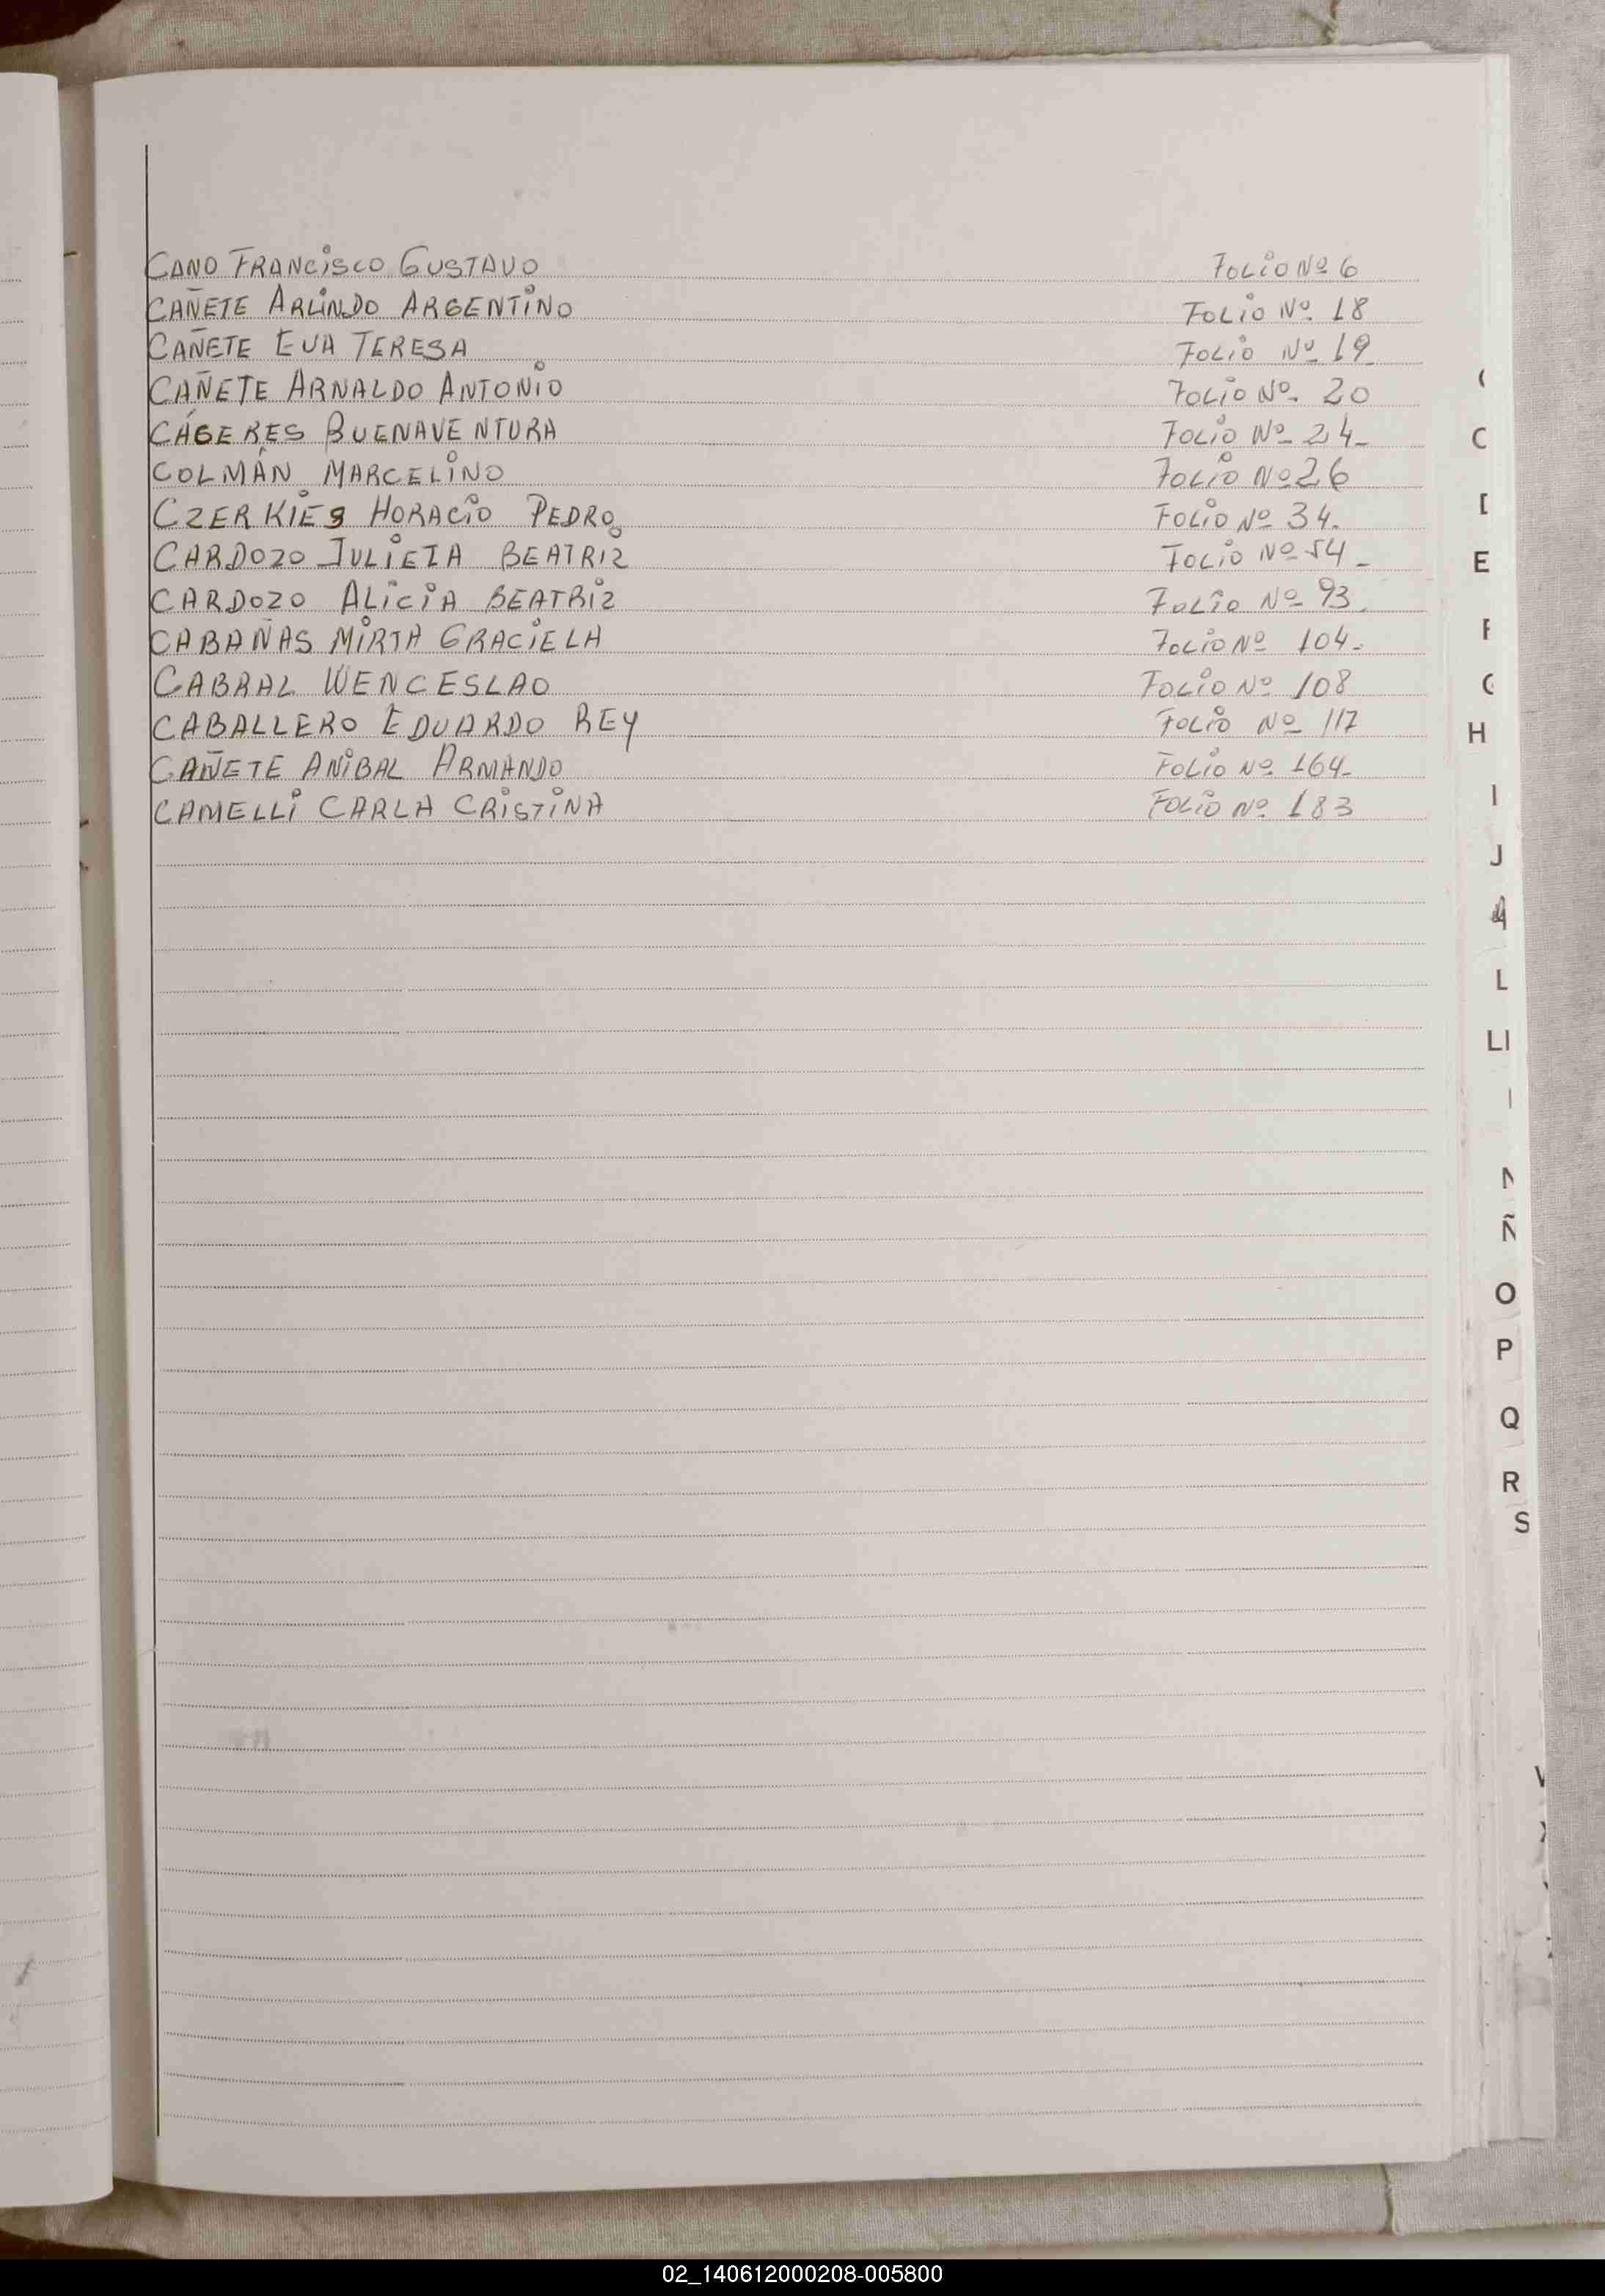 CANO FRANCISCO GUSTAVO Folio Nº 6
CAÑETE ARLINDO ARGENTINO Folio Nº 18
CAÑETE EVA TERESA Folio Nº 19
CAÑETE ARNALDO ANTONIO Folio Nº 20
CÁCERES BUENAVENTURA Folio Nº 24
COLMÁN MARCELINO Folio Nº 26
CZERKIES HORACIO PEDRO Folio Nº 34.
CARDOZO JULIETA BEATRIZ Folio Nº 54
CARDOZO ALICIA BEATRIZ Folio Nº 93
CABAÑAS MIRTA GRACIELA Folio Nº 104
CABRAL WENCESLAO Folio Nº 108
CABALLERO EDUARDO REY Folio Nº 117
CAÑETE ANIBAL ARMANDO Folio Nº 164
CAMELLI CARLA CRISTINA Folio Nº 183
C
E
H
I
J
L
Ll
Ñ
O
P
Q
R
S
02_140612000208-005800